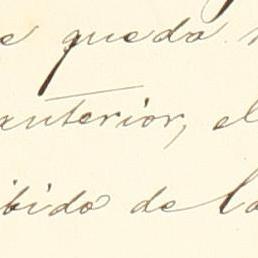 e queda
anterior, el
ibido de la